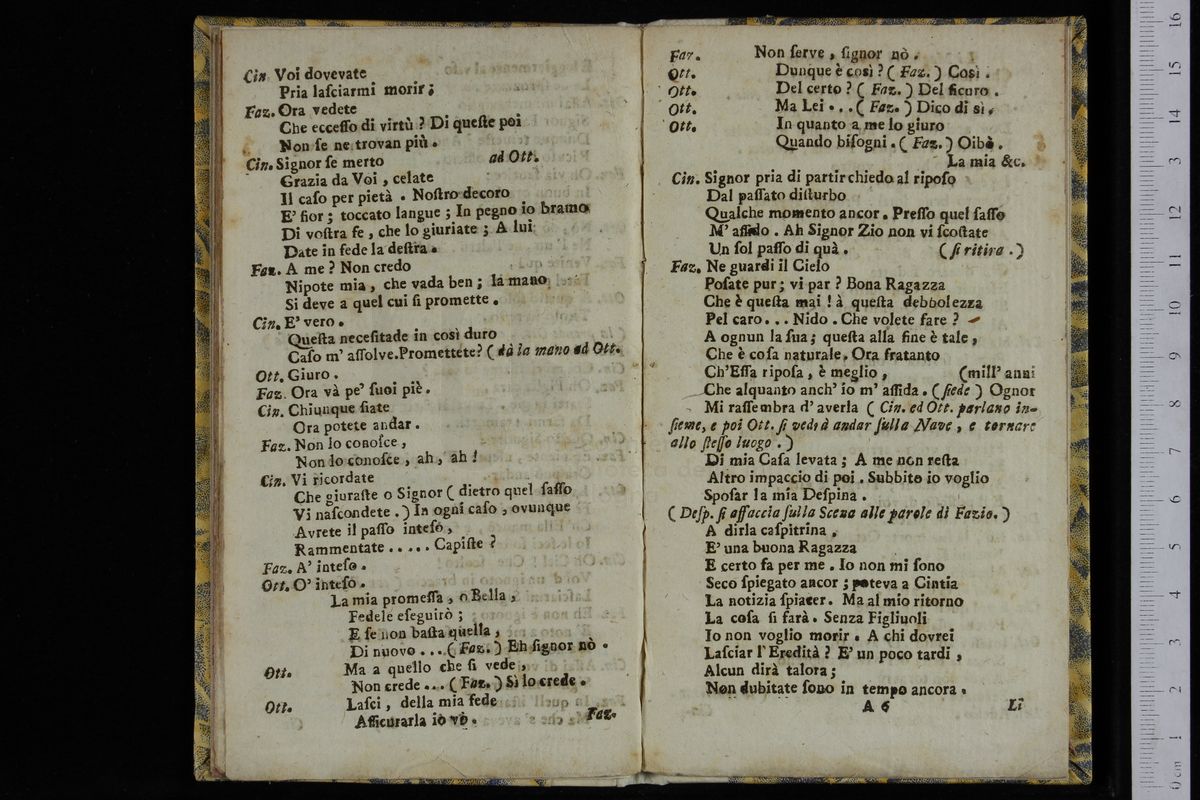 Cin Voi dovevate
Pria laſciarmi morir;
Faz. Ora vedete
Che ecceſſo di virtù ? Di queſte poi
Non ſe ne trovan più .
Cin. Signor ſe merto ad Ott.
Grazia da Voi , celate
Il caſo per pietà . Noſtro decoro
E' fior ; toccato langue ; In pegno io bramo
Di voſtra fe , che lo giuriate ; A lui
Date in fede la deſtra .
Faz. A me ? Non credo
Nipote mia , che vada ben ; la mano
Si deve a quel cui ſi promette .
Cin. E' vero .
Queſta neceſitade in così duro
Caſo m' aſſolve.Promettete? ( dà la mano ad Ott.
Ott. Giuro .
Faz. Ora và pe' ſuoi piè .
Cin. Chiunque ſiate
Ora potete andar .
Faz. Non lo conoſce ,
Non lo conoſce , ah , ah !
Cin. Vi ricordate
Che giuraſte o Signor ( dietro quel ſaſſo
Vi naſcondete . ) In ogni caſo , ovunque
Avrete il paſſo inteſo ,
Rammentate ..... Capiſte ?
Faz. A' inteſo .
Ott. O' inteſo .
La mia promeſſa , o Bella ,
Fedele eſeguirò ;
E ſe non baſta quella ,
Di nuovo ... ( Faz. ) Eh ſignor nò .
Ott. Ma a quello che ſi vede ,
Non crede ... ( Faz. ) Sì lo crede .
Ott. Laſci , della mia fede
Aſſicurarla io vò .
Faz.
Faz. Non ſerve , ſignor nò .
Ott. Dunque è così ? ( Faz. ) Così .
Ott. Del certo ? ( Faz. ) Del ſicuro .
Ott. Ma Lei ... ( Faz. ) Dico di sì .
Ott. In quanto a me lo giuro
Quando biſogni . ( Faz. ) Oibò .
La mia &c.
Cin. Signor pria di partir chiedo al ripoſo
Dal paſſato diſturbo
Qualche momento ancor . Preſſo quel ſaſſo
M' aſſido . Ah Signor Zio non vi ſcoſtate
Un ſol paſſo di quà . ( ſi ritira . )
Faz. Ne guardi il Cielo
Poſate pur ; vi par ? Bona Ragazza
Che è queſta mai ! à queſta debbolezza
Pel caro ... Nido . Che volete fare ?
A ognun la ſua ; queſta alla fine è tale ,
Che è coſa naturale . Ora fratanto
Ch'Eſſa ripoſa , è meglio , (mill' anni
Che alquanto anch' io m' aſſida . ( ſiede ) Ognor
Mi raſſembra d' averla ( Cin. ed Ott. parlano in-
ſieme, e poi Ott. ſi vedrà andar ſulla Nave , e tornare
allo ſteſſo luogo . )
Di mia Caſa levata ; A me non reſta
Altro impaccio di poi . Subbito io voglio
Spoſar la mia Deſpina .
( Deſp. ſi affaccia ſulla Scena alle parole di Fazio. )
A dirla caſpitrina ,
E' una buona Ragazza
E certo fa per me . Io non mi ſono
Seco ſpiegato ancor ; poteva a Cintia
La notizia ſpiacer . Ma al mio ritorno
La coſa ſi farà . Senza Figliuoli
Io non voglio morir . A chi dovrei
Laſciar l' Eredità ? E' un poco tardi ,
Alcun dirà talora ;
Non dubitate ſono in tempo ancora .
A 6 Li
16
15
14
13
12
11
10
9
8
7
6
5
4
3
2
1
0 cm